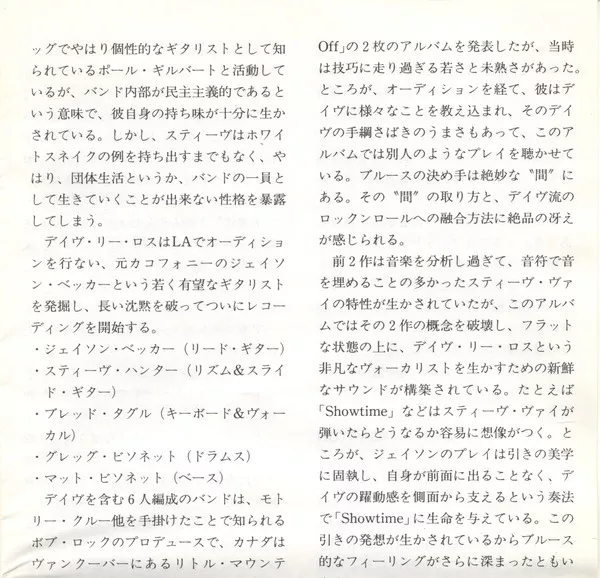 ッグでやはり個性的なギタリストとして知
られているポール・ギルバートと活動して
いるが、バンド内部が民主主義的であると
いう意味で、彼自身の持ち味が十分に生か
されている。しかし、スティーヴはホワイ
トスネイクの例を持ち出すまでもなく、や
はり、団体生活というか、バンドの一員と
して生きていくことが出来ない性格を暴露
してしまう。
デイヴ・リー・ロスはLAでオーディショ
ンを行ない、元カコフォニーのジェイソ
ン・ベッカーという若く有望なギタリスト
を発掘し、長い沈黙を破ってついにレコー
ディングを開始する。
・ジェイソン・ベッカー（リード・ギター）
・スティーヴ・ハンター（リズム&スライ
ド・ギター）
・ブレッド・タグル（キーボード&ヴォー
カル）
・グレッグ・ビソネット（ドラムス）
・マット・ビソネット（ベース）
デイヴを含む6人編成のバンドは、モト
リー・クルー他を手掛けたことで知られる
ボブ・ロックのプロデュースで、カナダは
ヴァンクーバーにあるリトル・マウンテ
Off」の2枚のアルバムを発表したが、当時
は技巧に走り過ぎる若さと未熟さがあった。
ところが、オーディションを経て、彼はデ
イヴに様々なことを教え込まれ、そのデイ
ヴの手綱さばきのうまさもあって、このア
ルバムでは別人のようなプレイを聴かせて
いる。ブルースの決め手は絶妙な〝間〟に
ある。その〝間〟の取り方と、デイヴ流の
ロックンロールへの融合方法に絶品の冴え
が感じられる。
前2作は音楽を分析し過ぎて、音符で音
を埋めることの多かったスティーヴ・ヴァ
イの特性が生かされていたが、このアルバ
ムではその2作の概念を破壊し、フラット
な状態の上に、デイヴ・リー・ロスという
非凡なヴォーカリストを生かすための新鮮
なサウンドが構築されている。たとえば
「Showtime」などはスティーヴ・ヴァイが
弾いたらどうなるか容易に想像がつく。と
ころが、ジェイソンのプレイは引きの美学
に固執し、自身が前面に出ることなく、デ
イヴの躍動感を側面から支えるという奏法
で「Showtime」に生命を与えている。この
引きの発想が生かされているからブルース
的なフィーリングがさらに深まったともい